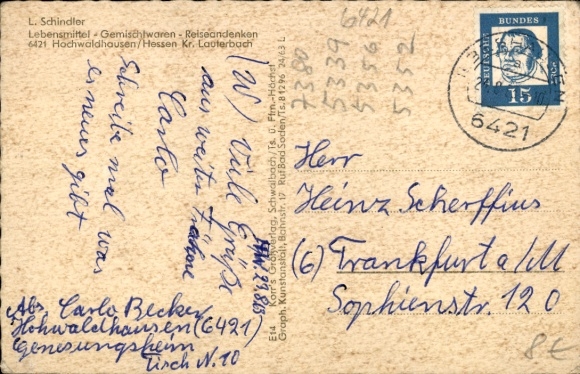 L. Schindler
Lebensmittel - Gemischtwaren - Reiseandenken
6421 Hochwaldhausen/Hessen Kr. Lauterbach
6421
7380
5339
5356
5352
DEUTSCHE
BUNDES
15
6421
(W) Viele Grüße
aus weiter
Carlo
Schreibe mal was
es neues gibt
Abs. Carlo Becker
Hohwaldhausen (6421)
Genesungsheim
Tisch N. 10
E14 Korr's Großverlag, Schwalbach/Ts. ü. Ffm.-Höchst
Graph. Kunstanstalt, Bahnstr. 17 Ruf Bad Soden/Ts. 81296 24/63 L
Herr
Heinz Scherffius
(6) Frankfurt a/M
Sophienstr. 120
8€